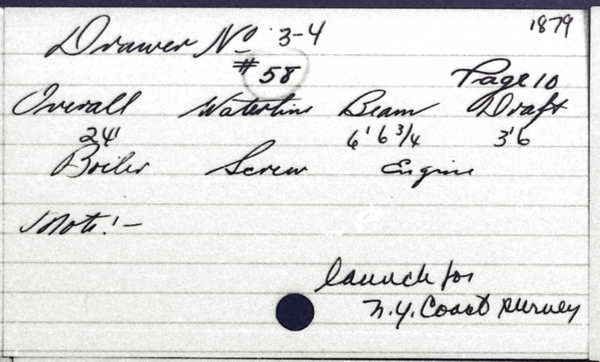 1879
Drawer No 3-4
#58
Page 10
Overall Waterline Beam Draft
24' 6' 6 3/4 3'6
Boiler Screw Engine
Note:-
launch for
N.Y. Coast Survey